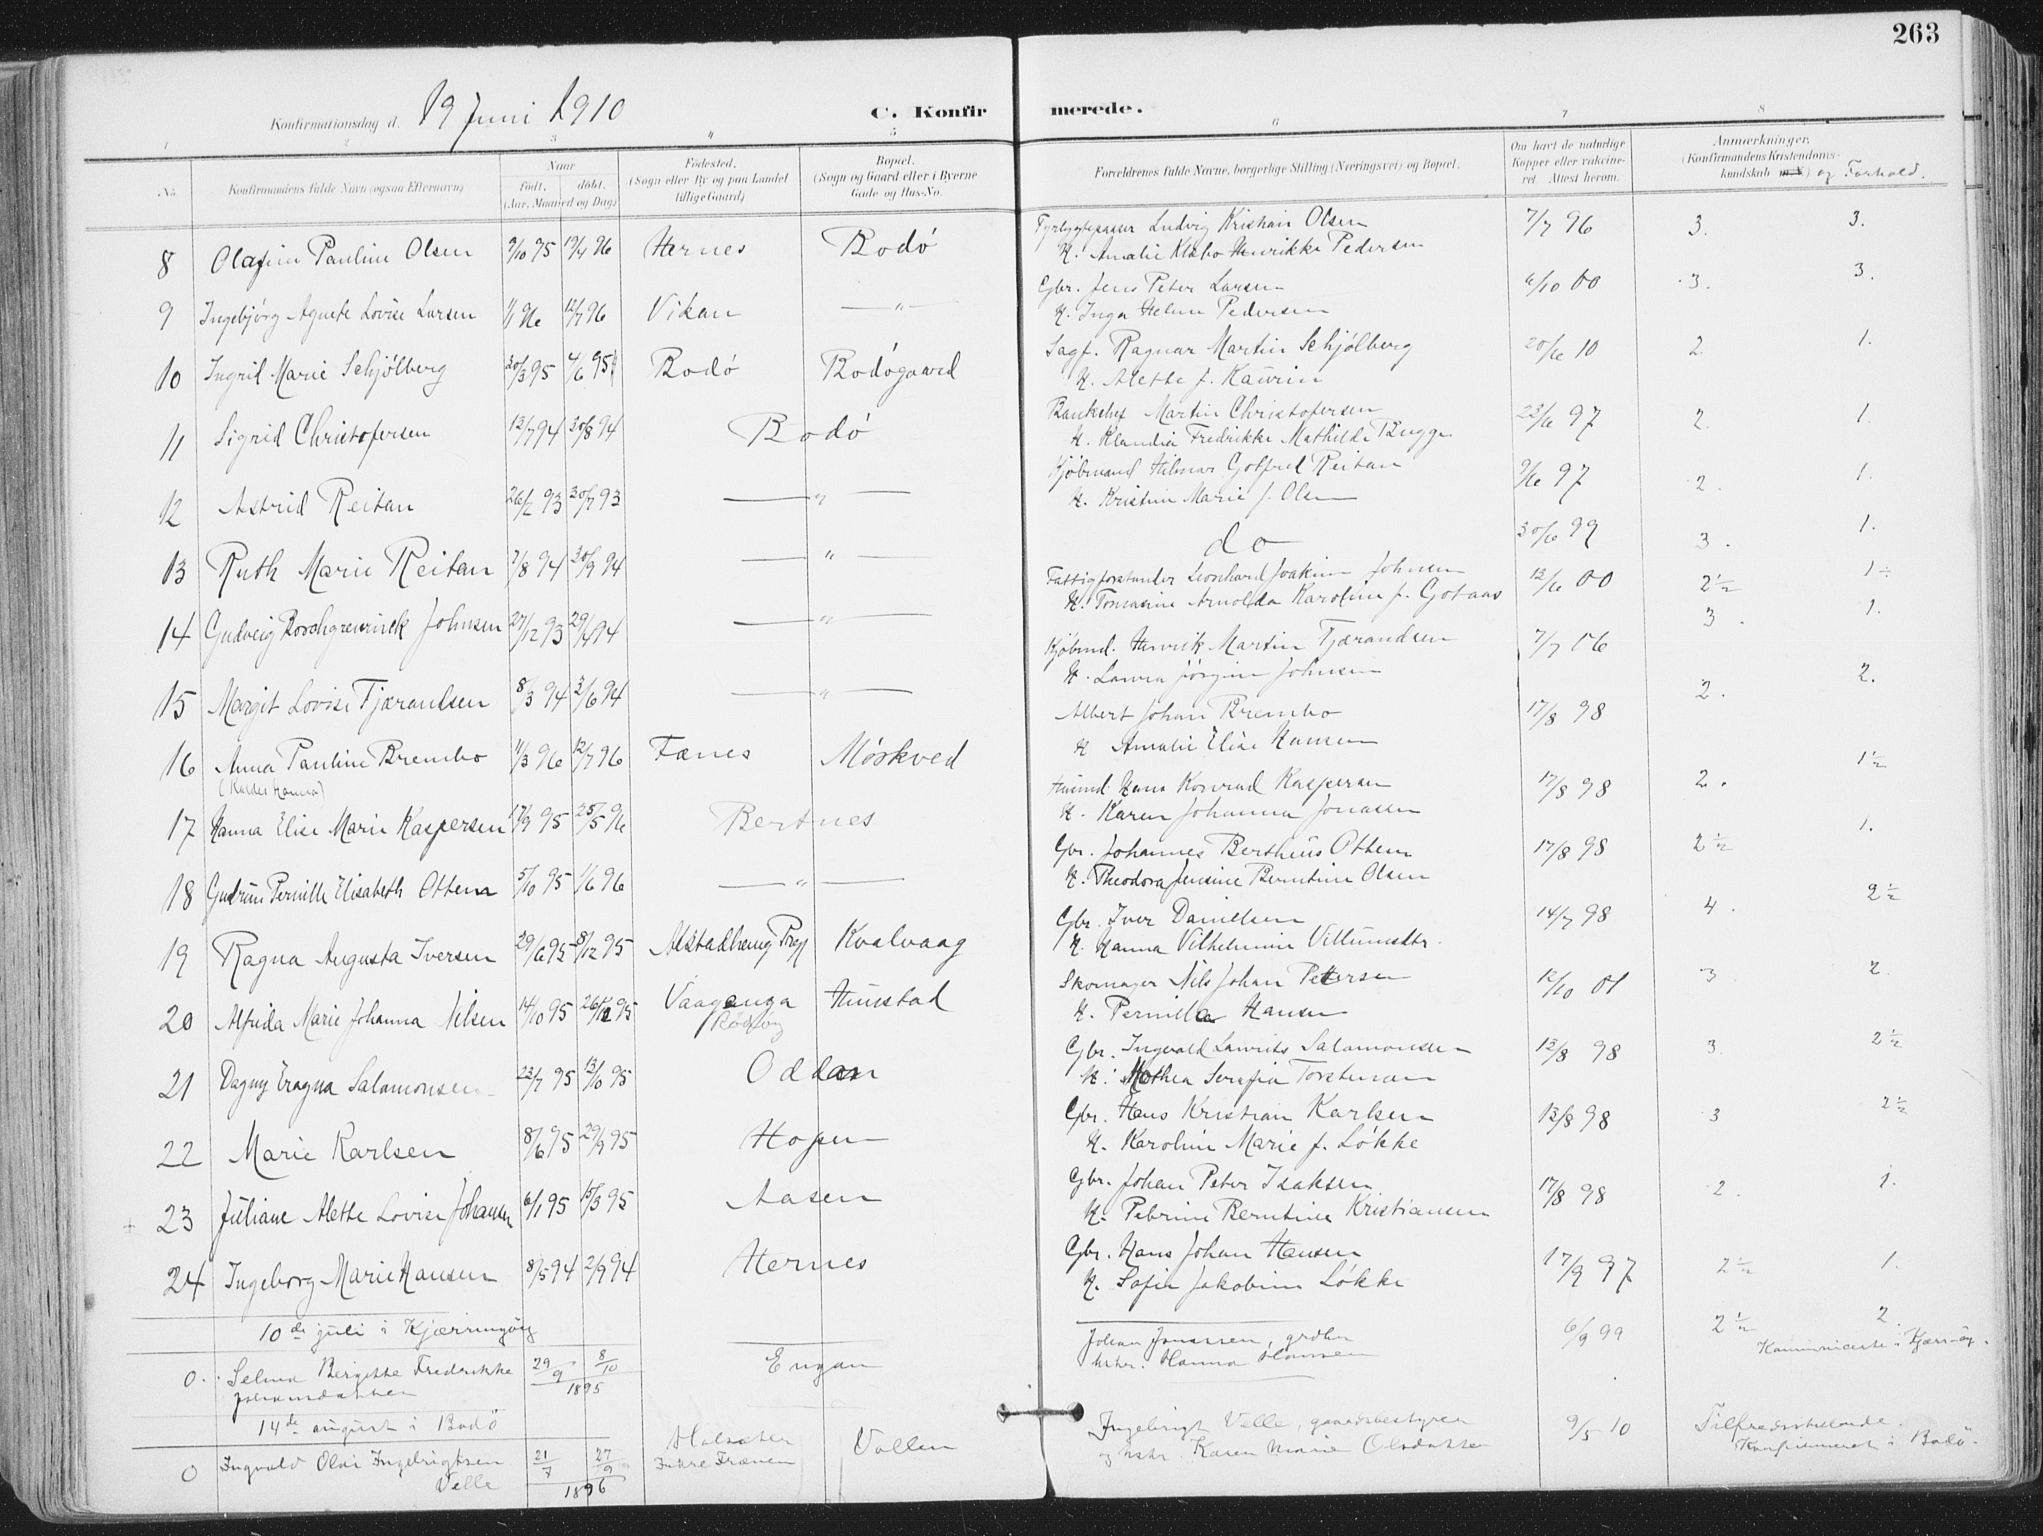 263
Konfirmationsdag d. 19 Juni 1910
C. Konfirmerede.
1 2 3 4 5 6 7 8
No.
Konfirmandens fulde Navn (ogsaa Efternavn)
Naar
født. døbt.
(Aar, Maaned og Dag)
Fødested.
(Sogn eller By og paa Landet
tillige Gaard)
Bopæl.
(Sogn og Gaard eller i Byerne
Gade og Hus-No.
Forældrenes fulde Navne, borgerlige Stilling (Næringsvei) og Bopæl.
Om havt de naturlige
Kopper eller vakcine-
ret. Attest herom.
Anmærkninger.
(Konfirmandens Kristendoms-
kundskab m. v.) og Forhold.
8 Olafine Pauline Olsen 9/10 95 19/4 96 Hernes Bodø
Fyrbygtepasser Ludvig Kristian Olsen 7/7 96 3. 3.
H. Amalie Klebo Henrikke Pedersen
9 Ingebjörg Agnete Lovise Larsen 1/1 96 12/7 96 Vikan —"—
Gbr. Jens Peter Larsen 6/10 00 3. 3.
H. Inga Helene Pedersen
10 Ingrid Marie Schjølberg 20/3 95 4/6 95 Bodø Bodøgaard
Sagf. Ragnar Martin Schjølberg 20/6 10 2. 1.
H. Alette f. Kaurin
11 Sigrid Christofersen 12/7 94 30/8 94 Bodø
Bankchef Martin Christofersen 22/6 97 2. 1.
H. Klaudia Fredrikke Mathilde Bugge
12 Astrid Reitan 26/2 93 30/7 93 —"—
Kjøbmand Hilmar Gotfred Reitan 9/6 97 2. 1.
H. Kristine Marie f. Olsen
13 Ruth Marie Reitan 7/8 94 30/9 94 —"—
do 30/6 99 3. 1.
14 Gudveig Borchgrevinck Johnsen 27/12 93 29/4 94 —"—
Fattigforstander Leonhard Joakim Johnsen 13/6 00 2½ 1÷
H. Tomasine Arnolda Karoline f. Gotaas
15 Margit Lovise Fjærandsen 8/3 94 3/6 94 —"—
Kjøbmd. Henrik Martin Fjærandsen 7/7 06 3. 1.
H. Laura Jørgine Johnsen
16 Anna Pauline Brembo 11/3 96 12/7 96 Fænes Mørkved
(Kaldes Hanna)
Albert Johan Brembo 17/8 98 2. 2.
H Amalie Elise Hansen
17 Hanna Elise Marie Kaspersen 17/9 95 25/5 96 Bertnes
Husmd. Hans Konrad Kaspersen 17/8 98 2. 1½
H. Karen Johanna Jonassen
18 Gudrun Pernille Elisabeth Ottem 5/10 95 1/6 96 —"—
Gbr. Johannes Bertheus Ottem 17/8 98 2½ 1.
H. Theodora Jensine Berntine Olsen
19 Ragna Augusta Iversen 29/6 95 8/12 95 Alstadhaug Prgj Kvalvaag
Gbr. Iver Danielsen 14/7 98 4. 2½
H. Hanna Vilhelmine Villumsdtr.
20 Alfrida Marie Johanna Nilsen 14/10 95 26/12 95 Vaagenga Hunstad
Rødøy
Skomager Nils Johan Pettersen 12/10 01 3 2.
H. Pernilla Hansen
21 Dagny Eragna Salamonsen 22/7 95 13/10 95 Oddan
Gbr. Ingvald Laurits Salamonsen 13/8 98 3. 2½
H. Mothea Serafia Torstensen
22 Marie Karlsen 8/6 95 29/9 95 Hopen
Gbr. Hans Kristian Karlsen 13/8 98 3 2½
H. Karoline Marie f. Løkke
+ 23 Juliane Alette Lovise Johansen 6/1 95 15/3 95 Aasen
Gbr. Johan Peter Isaksen 17/8 98 2. 1.
H. Petrine Berntine Kristiansen
24 Ingeborg Marie Hansen 8/5 94 2/9 94 Hernes
Gbr. Hans Johan Hansen 17/9 97 2½ 1.
H. Sofie Jakobine Løkke
10de juli i Kjærringøy
0. Selma Birgitte Fredrikke 29/9 8/10 Engan
Johansdatter 1895
Johan Jonassen, grdbr 6/9 99 2½ 2.
hstr. Hanna Hansen Kommunicerte i Kjærr-øy.
14de august i Bodö
0 Ingvald Olai Ingebrigtsen 21/7 27/9
Velle 1896
Holsæter Vollen
Indre Frænen
Ingebrigt Velle, gaardsbestyrer 9/5 10 Tilfredsstillende.
og hstr. Karen Marie Olsdatter Konfirmeret i Bodö.